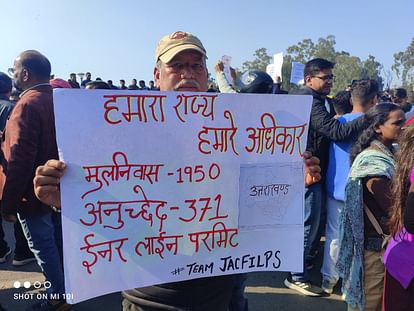 हमारा राज्य
हमारे अधिकार
मुलनिवास - 1950
उत्तराखण्ड
अनुच्छेद - 371
ईनर लाईन परमिट
#= TEAM JACFILPS
SHOT ON MI A10